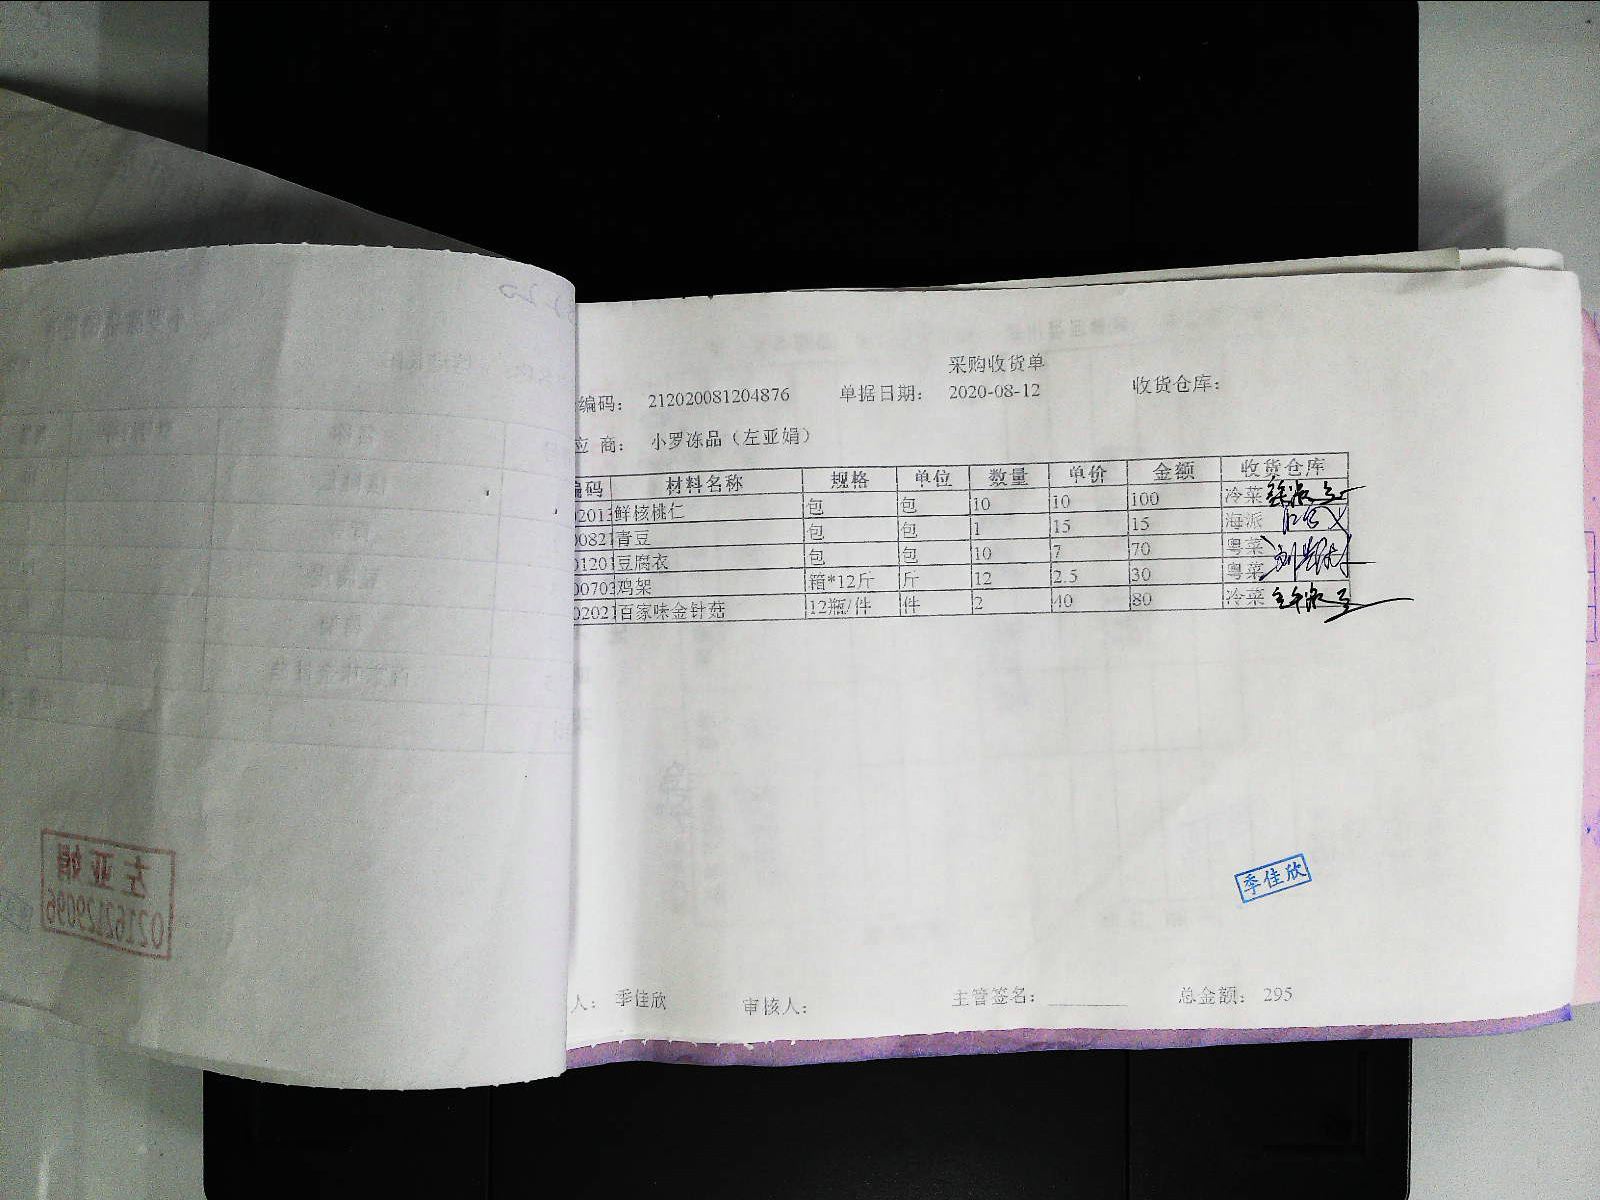 采购收货单
编码： 212020081204876 单据日期： 2020-08-12 收货仓库：
应 商： 小罗冻品（左亚娟）
编码 材料名称 规格 单位 数量 单价 金额 收货仓库
02013 鲜核桃仁 包 包 10 10 100 冷菜
00821 青豆 包 包 1 15 15 海派
01201 豆腐衣 包 包 10 7 70 粤菜
00703 鸡架 箱*12斤 斤 12 2.5 30 粤菜
02021 百家味金针菇 12瓶/件 件 2 40 80 冷菜
季佳欣
人： 季佳欣 审核人： 主管签名： 总金额： 295
左亚娟
02162129096